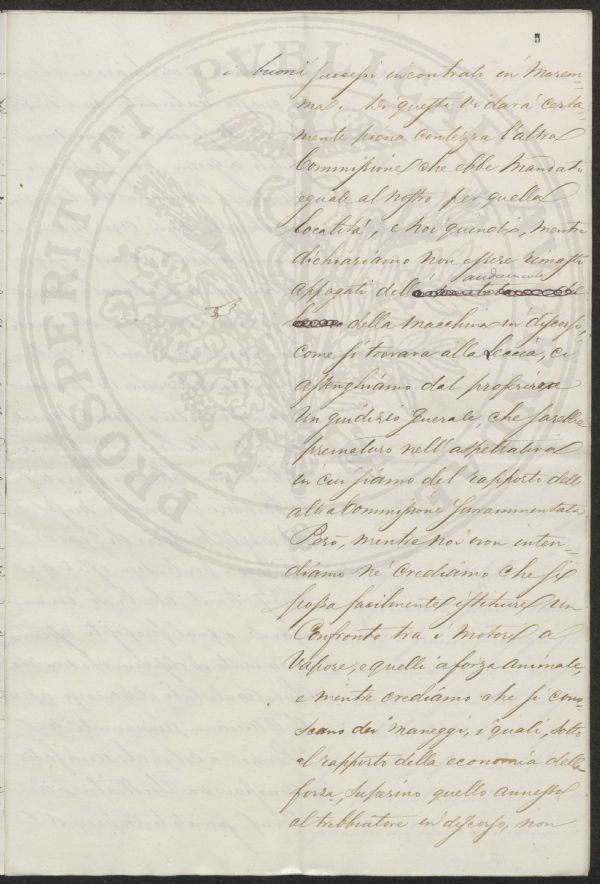 5
PROSPERITATI PUBLICAE
i buoni successi incontrati in Marem=
ma. Di questi vi darà certa=
mente piena contezza l'altra
Commissione che ebbe mandato
eguale al nostro per quella
località, e noi quindi, mentre
dichiariamo non essere rimasti
appagati dell andamento
della macchina in discorso,
come si trovava alla Leccia, ci
asteniamo dal proferire
un giudizio generale, che sarebbe
prematuro nell'aspettativa
in cui siamo del rapporto della
altra Commissione surrammentata
Però, mentre noi non inten=
diamo nè crediamo che si
possa facilmente istituire un
Confronto tra i motori a
Vapore, e quelli a forza animale,
e mentre crediamo che si cono=
scano dei maneggi, i quali, sotto
il rapporto della economia della
forza, superino quello annesso
al trebbiatore in discorso, non